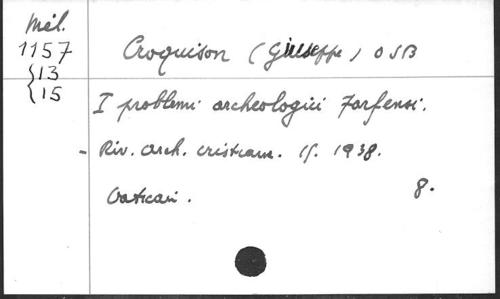 Mél.
1157
13
15
Croquison (Giuseppe) OSB
I problemi archeologici farfensi.
- Riv. arch. cristiana. 15. 1938.
Vatican.
8.